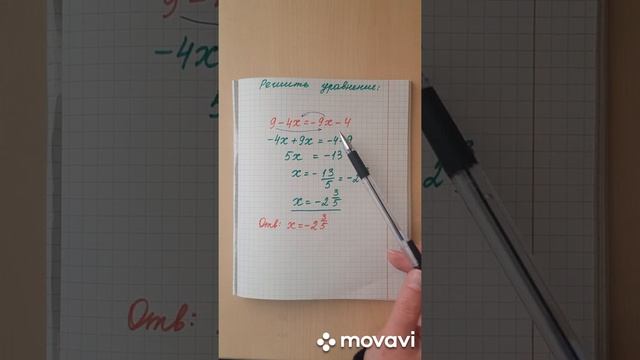 Решить уравнение:
9 - 4x = -9x - 4
-4x + 9x = -4-9
5x = -13
x = - 13/5 = -2
x = -2 3/5
Отв: x = -2 3/5
movavi